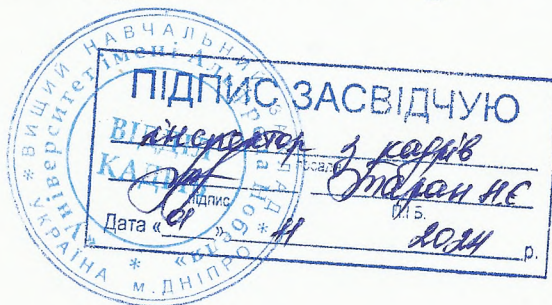 * ВИЩИЙ НАВЧАЛЬНИЙ ЗАКЛАД *
«Університет імені Альфреда Нобеля»
* УКРАЇНА м. ДНІПРО *
ВІДДІЛ
КАДРІВ
ПІДПИС ЗАСВІДЧУЮ
інспектор з кадрів
Посада
Таран Н.Є
Підпис
П.І.Б.
Дата «01» 11 2024 р.